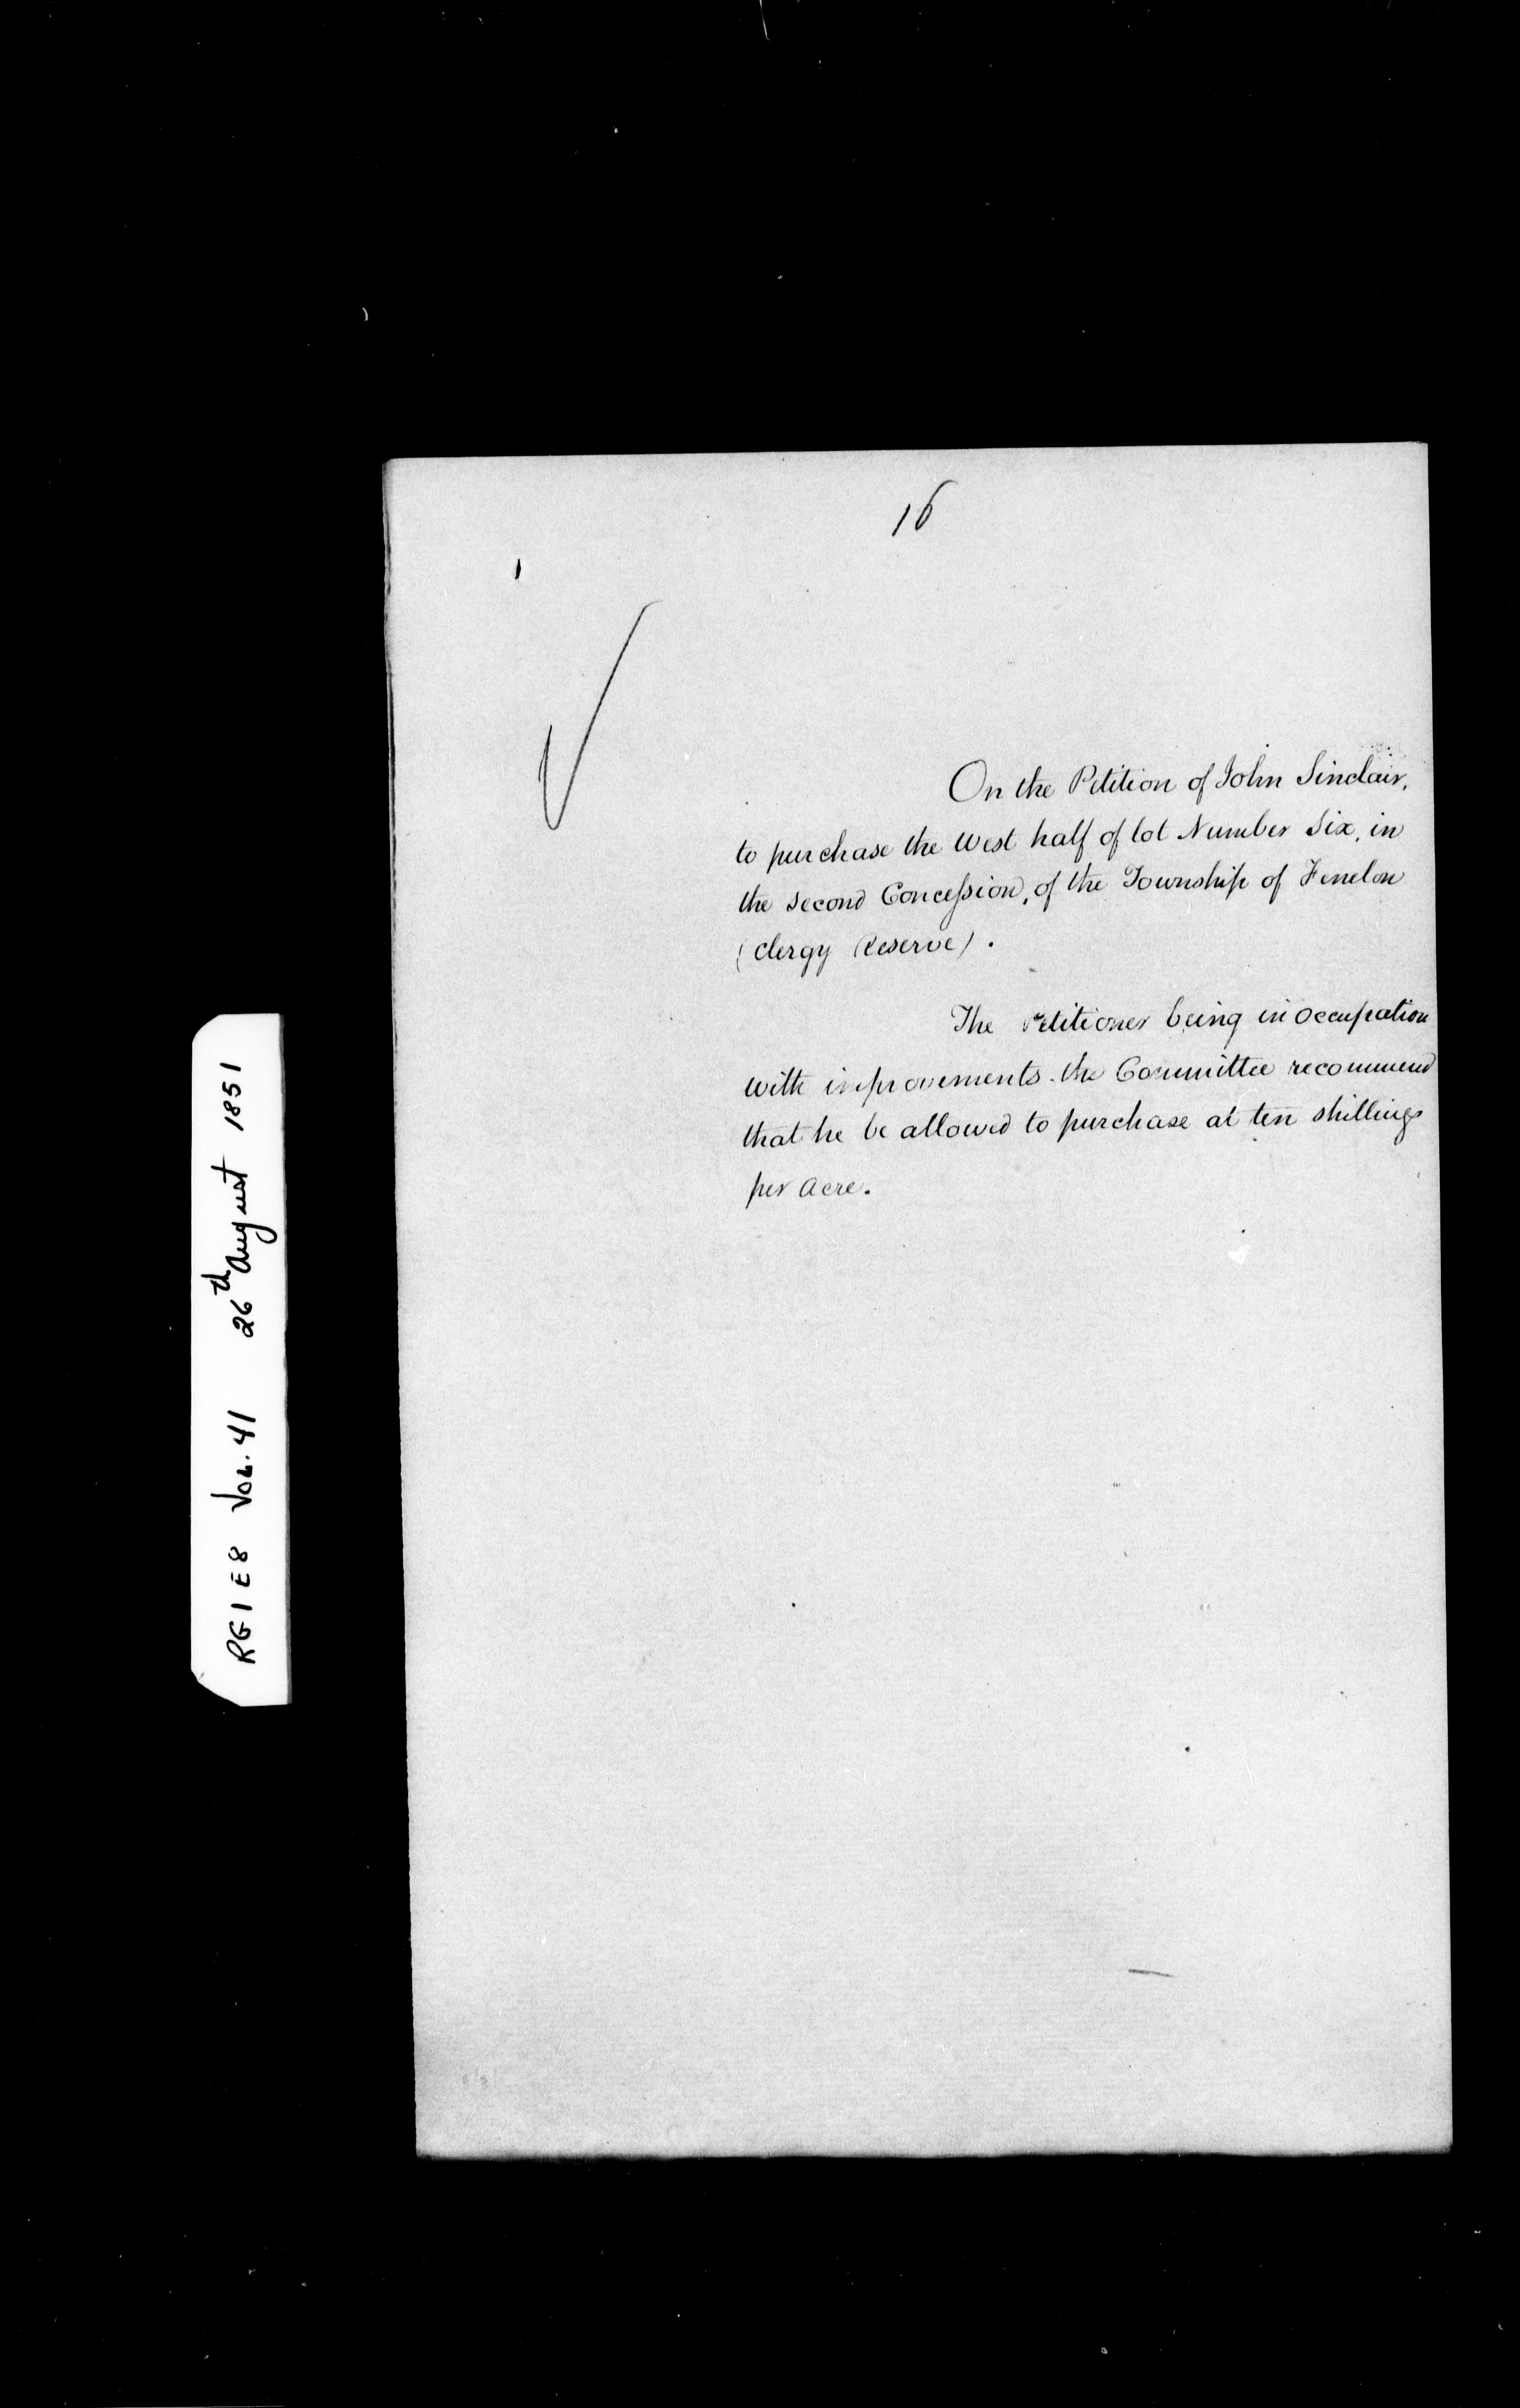 16
On the Petition of John Sinclair,
to purchase the West half of lot Number Six, in
the second Concession, of the Township of Fenelon
(Clergy Reserve).
The Petitioner being in occupation
with improvements. the Committee recommend
that he be allowed to purchase at ten shillings
per acre.
RG1 E8 Vol. 41 26th August 1851